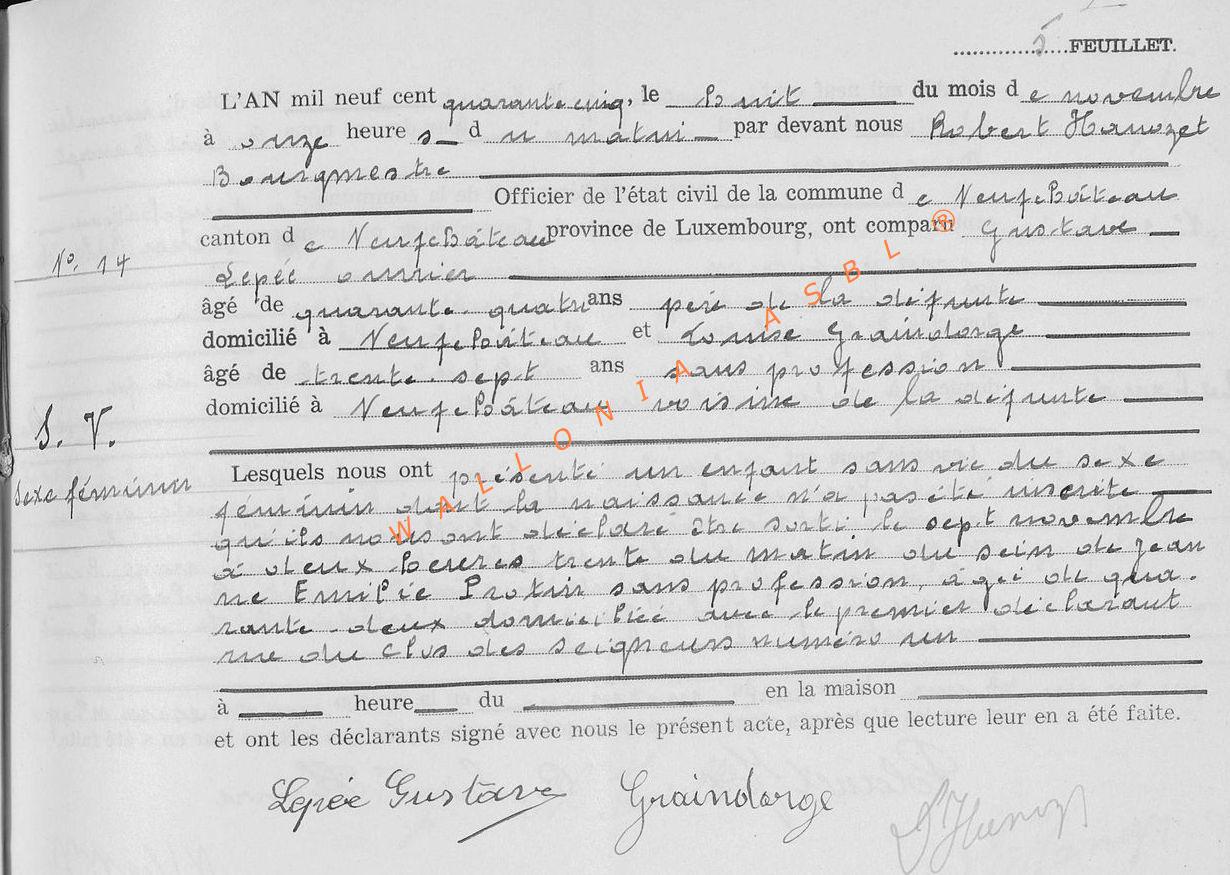 5 FEUILLET.
L'AN mil neuf cent quarante cinq, le huit du mois de novembre
à onze heures du matin par devant nous Robert Hanozet
Bourgmestre
Officier de l'état civil de la commune de Neufchâteau
canton de Neufchâteau province de Luxembourg, ont comparu Gustave
N°. 14
Lepée ouvrier
âgé de quarante-quatre ans père de la défunte
domicilié à Neufchâteau et Louise Graindorge
âgé de trente-sept ans sans profession
domicilié à Neufchâteau voisine de la défunte
S. V.
sexe féminin
Lesquels nous ont présenté un enfant sans vie du sexe
féminin dont la naissance n'a pas été inscrite
qu'ils nous ont déclaré être sorti le sept novembre
à deux heures trente du matin du sein de Jean
ne Emilie Protin sans profession, âgée de qua-
rante-deux domiciliée avec le premier déclarant
rue du Clos des Seigneurs numéro un
à heure du en la maison
et ont les déclarants signé avec nous le présent acte, après que lecture leur en a été faite.
Lepée Gustave Graindorge
WALLONIA ASBL ®